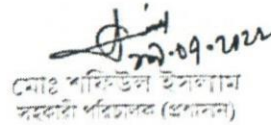 ০৭-২০২২
মোঃ শফিউল ইসলাম
সহকারী পরিচালক (প্রশাসন)